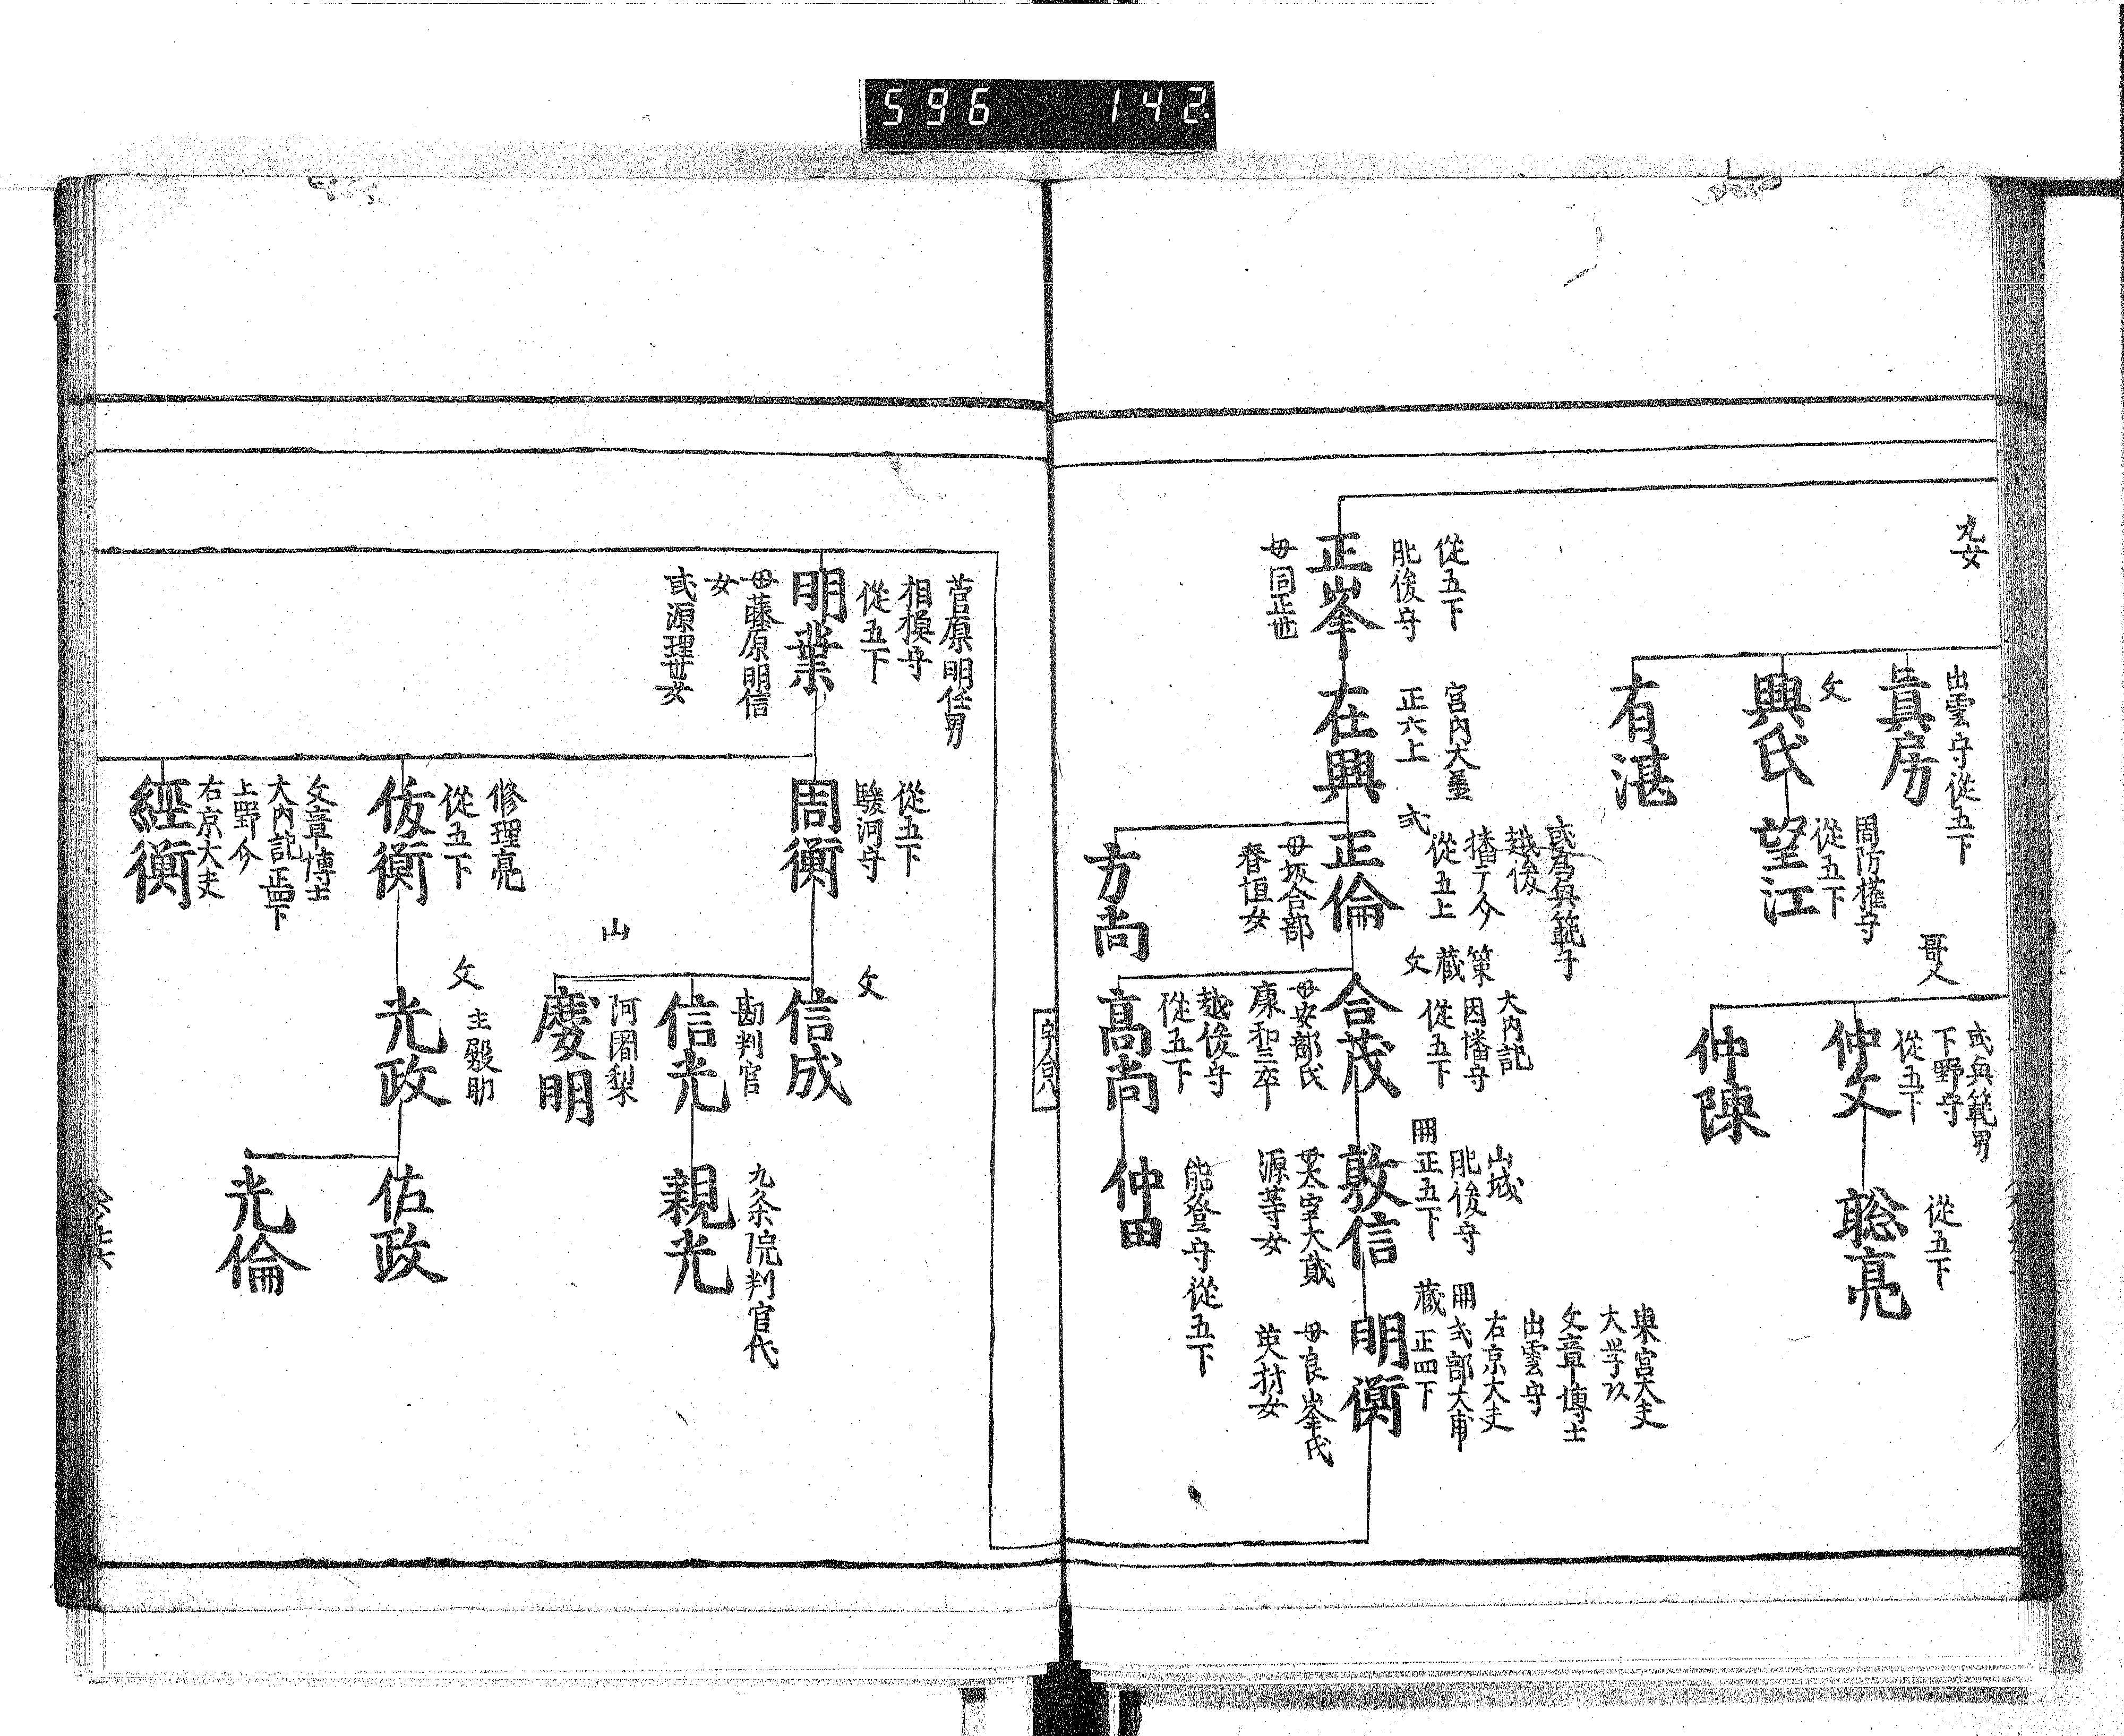 596 142
出雲守從五下
眞房
文
興氏
周防權守
從五下
望江
有湛
哥人
或興範男
下野守
從五下
仲文
從五下
聡亮
仲陳
從五下
肥後守
正峯
母同正世
宮内大墨
正六上
在興
或為興範子
越後
播广介
從五上
式
正倫
母坂合部
春恒女
方尚
大内記
策
因播守
藏
從五下
文
合茂
母安部氏
康和三卒
越後守
從五下
高尚
山城
肥後守
冊
正五下
敦信
母太宰大貳
源等女
能登守從五下
仲田
東宮大夫
大学頭
文章博士
出雲守
右京大夫
冊
式部大甫
藏
正四下
明衡
母良峯氏
英材女
菅原明任男
相摸守
從五下
明業
母藤原明信
女
或源理世女
從五下
駿河守
周衡
文
信成
勘判官
信光
九条院判官代
親光
山
阿闍梨
慶明
修理亮
從五下
仮衡
文
主殿助
光政
佐政
光倫
文章博士
大内記正四下
上野介
右京大夫
經衡